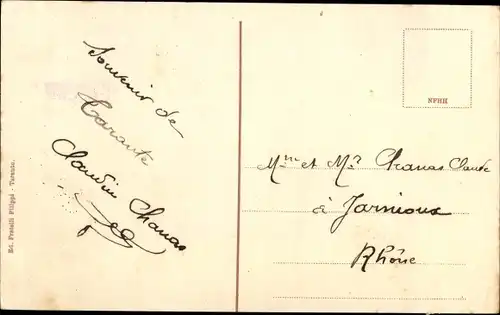 Souvenir de
Tarante
Claudius Chanas
Ed. Fratelli Filippi - Taranto.
NPHH
Mme et Mr Chanas Claude
à Jarnioux
Rhône